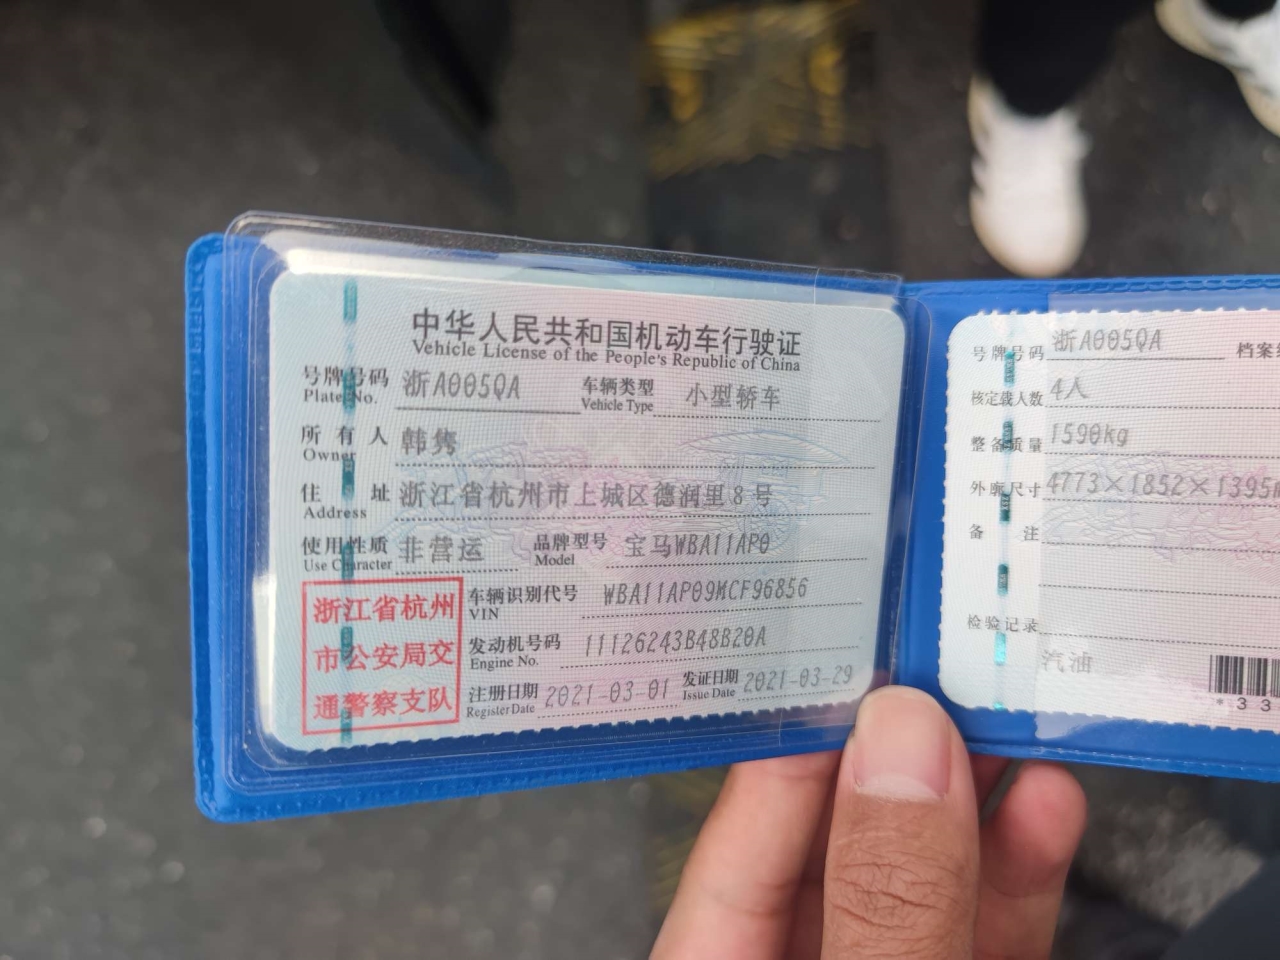 中华人民共和国机动车行驶证
Vehicle License of the People's Republic of China
号牌号码 浙A005QA 车辆类型 小型轿车
Plate No. Vehicle Type
所有人 韩隽
Owner
住址 浙江省杭州市上城区德润里8号
Address
使用性质 非营运 品牌型号 宝马WBA11AP0
Use Character Model
浙江省杭州
市公安局交
通警察支队
车辆识别代号 WBA11AP09MCF96856
VIN
发动机号码 11126243B48B20A
Engine No.
注册日期 2021-03-01 发证日期 2021-03-29
Register Date Issue Date
号牌号码 浙A005QA 档案
核定载人数 4人
整备质量 1590kg
外廓尺寸 4773×1852×1395
备注
检验记录
汽油
*33